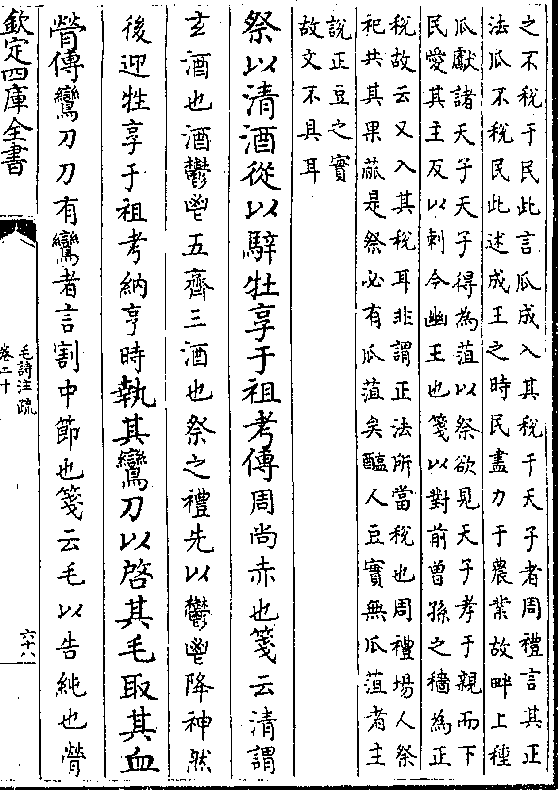 之不税于民此言瓜成入其税于天子者周禮言其正
法瓜不税民此述成王之時民盡力于農業故畔上種
瓜獻諸天子天子得為菹以祭欲見天子孝于親而下
民愛其主反以刺今幽王也箋以對前曾孫之穡為正
税故云又入其税耳非謂正法所當税也周禮場人祭
祀共其果蓏是祭必有瓜菹矣醢人豆實無瓜菹者主
説正豆之實
故文不具耳
祭以清酒從以騂牡享于祖考傳周尚赤也箋云清謂
玄酒也酒鬱鬯五齊三酒也祭之禮先以鬱鬯降神然
後迎牲享于祖考納亨時執其鸞刀以啓其毛取其血
膋傳鸞刀刀有鸞者言割中節也箋云毛以告純也膋
欽定四庫全書
毛詩注疏
卷二十
六十八